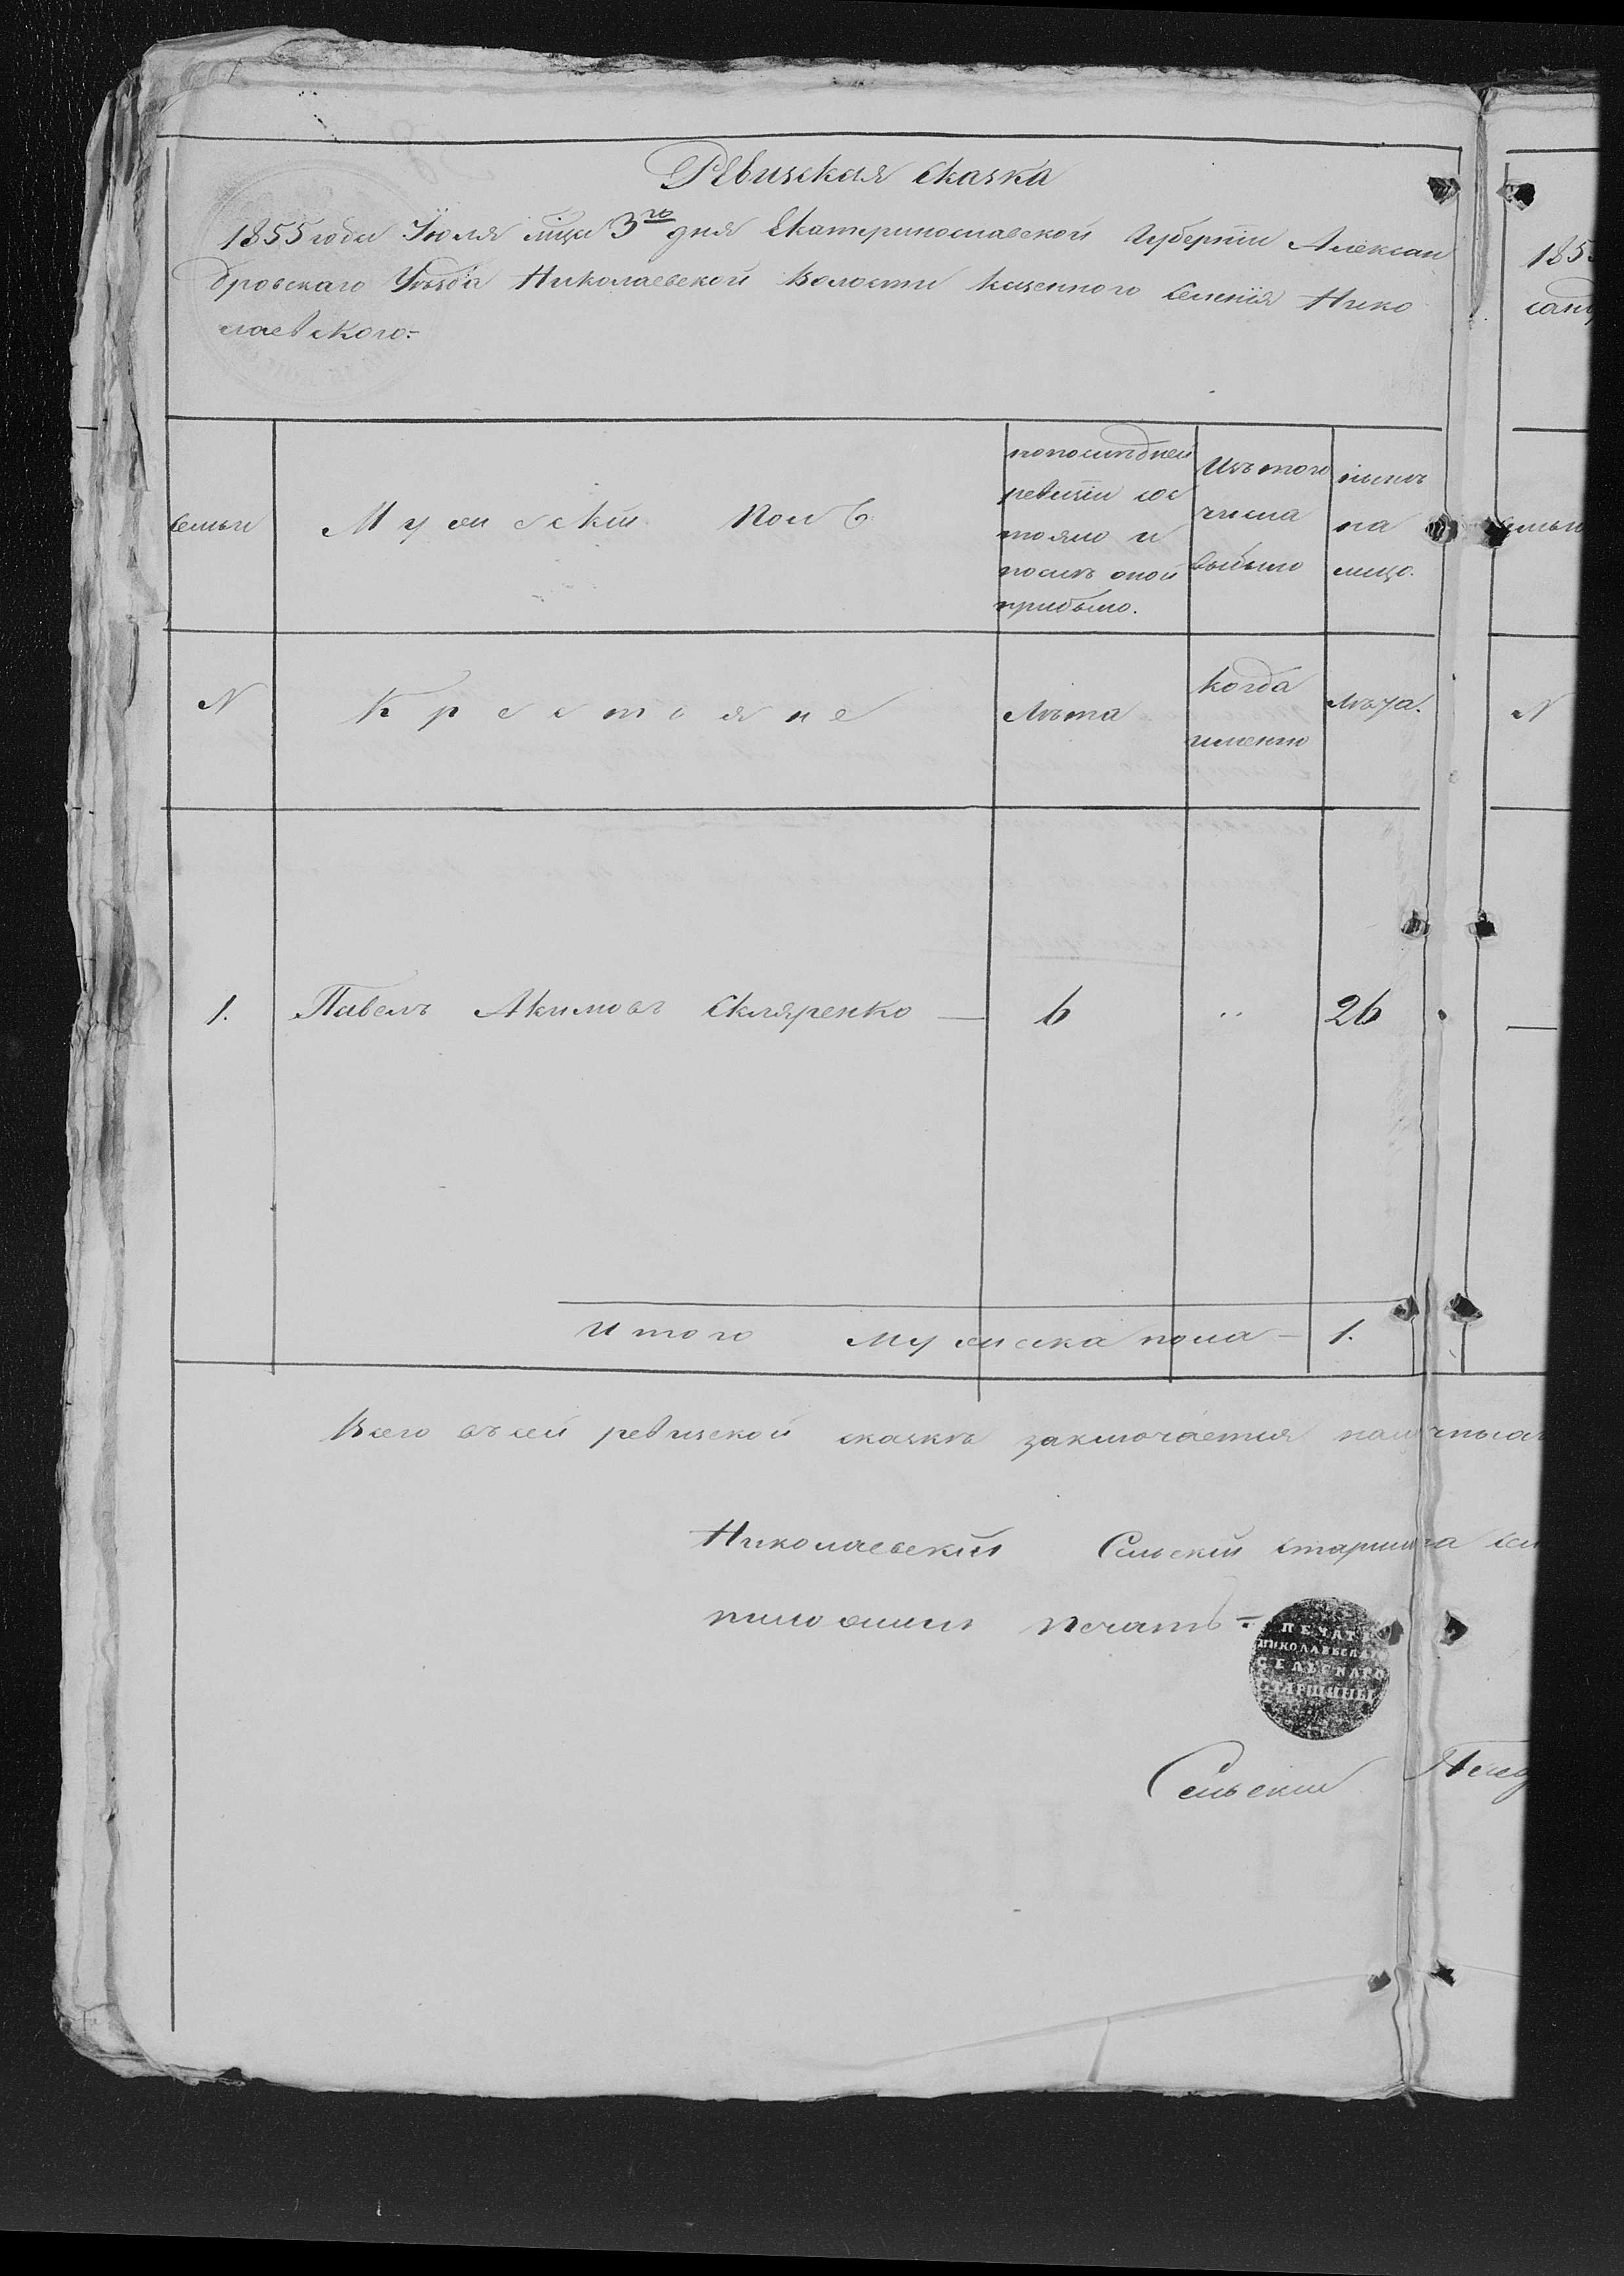 Ревизская сказка
1855 года Іюля мца 3го дня Екатеринославской Губерніи Алексан
дровскаго Уѣзда Николаевской Волости Казенного Селенія Нико
лаевского.
185
санд
Семьи
Мужескій Полъ
попослѣдней
ревизіи сос
тояло и
послѣ оной
прибыло.
Изъ того
числа
выбыло
нынѣ
на
лицо.
N
Крестьяне
Лѣта
когда
именно
Лѣта.
N
1. Павелъ Акимовъ Скляренко — 6 " 26
Итого мужеска пола — 1.
Всего въ сей ревизской сказкѣ заключается
Николаевскій Сельскій старшина
приложилъ печать
ПЕЧАТЬ
НИКОЛАЕВСКАГО
СЕЛЬСКАГО
СТАРШИНЫ
Сельскій